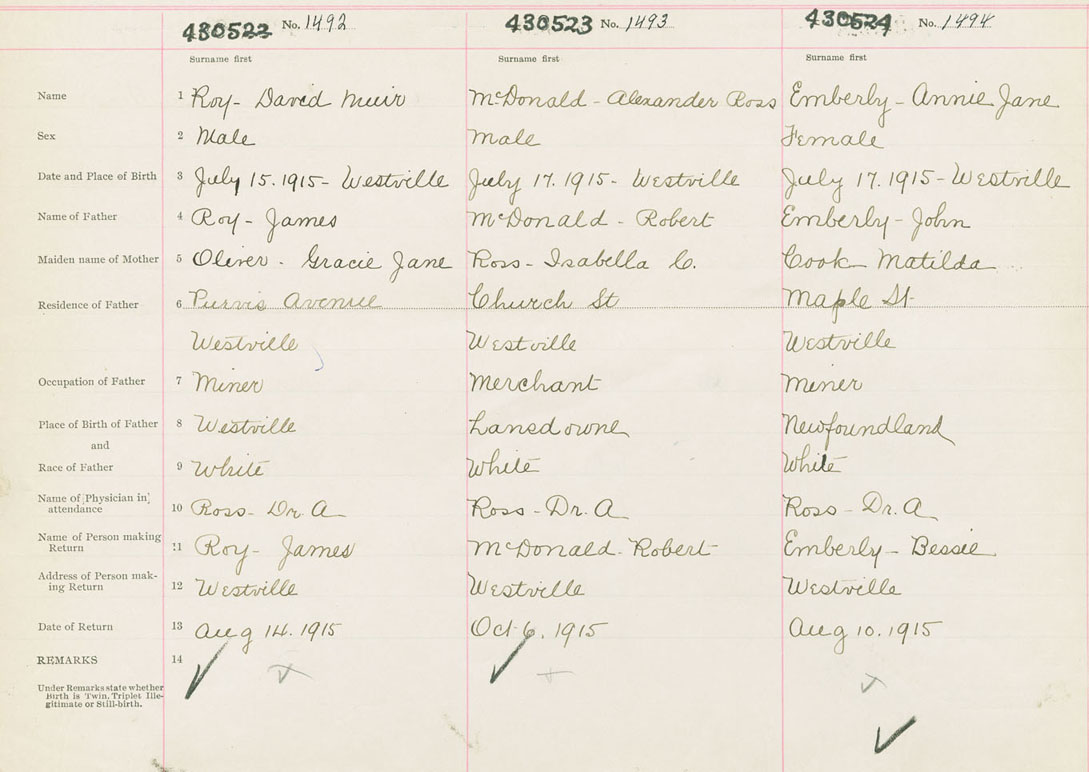 430522 No. 1492 430523 No. 1493 430524 No. 1494
Surname first Surname first Surname first
Name 1 Roy - David Muir McDonald - Alexander Ross Emberly - Annie Jane
Sex 2 Male Male Female
Date and Place of Birth 3 July 15. 1915 - Westville July 17. 1915 - Westville July 17. 1915 - Westville
Name of Father 4 Roy - James McDonald - Robert Emberly - John
Maiden name of Mother 5 Oliver - Gracie Jane Ross - Isabella C. Cook Matilda
Residence of Father 6 Purvis Avenue Church St Maple St
Westville Westville Westville
Occupation of Father 7 Miner Merchant Miner
Place of Birth of Father 8 Westville Lansdowne Newfoundland
and
Race of Father 9 White White White
Name of [Physician in]
attendance 10 Ross - Dr. A Ross - Dr. A Ross - Dr. A
Name of Person making
Return 11 Roy - James McDonald - Robert Emberly - Bessie
Address of Person mak-
ing Return 12 Westville Westville Westville
Date of Return 13 Aug 14. 1915 Oct 6. 1915 Aug 10. 1915
REMARKS 14
Under Remarks state whether
Birth is Twin, Triplet Ille-
gitimate or Still-birth.